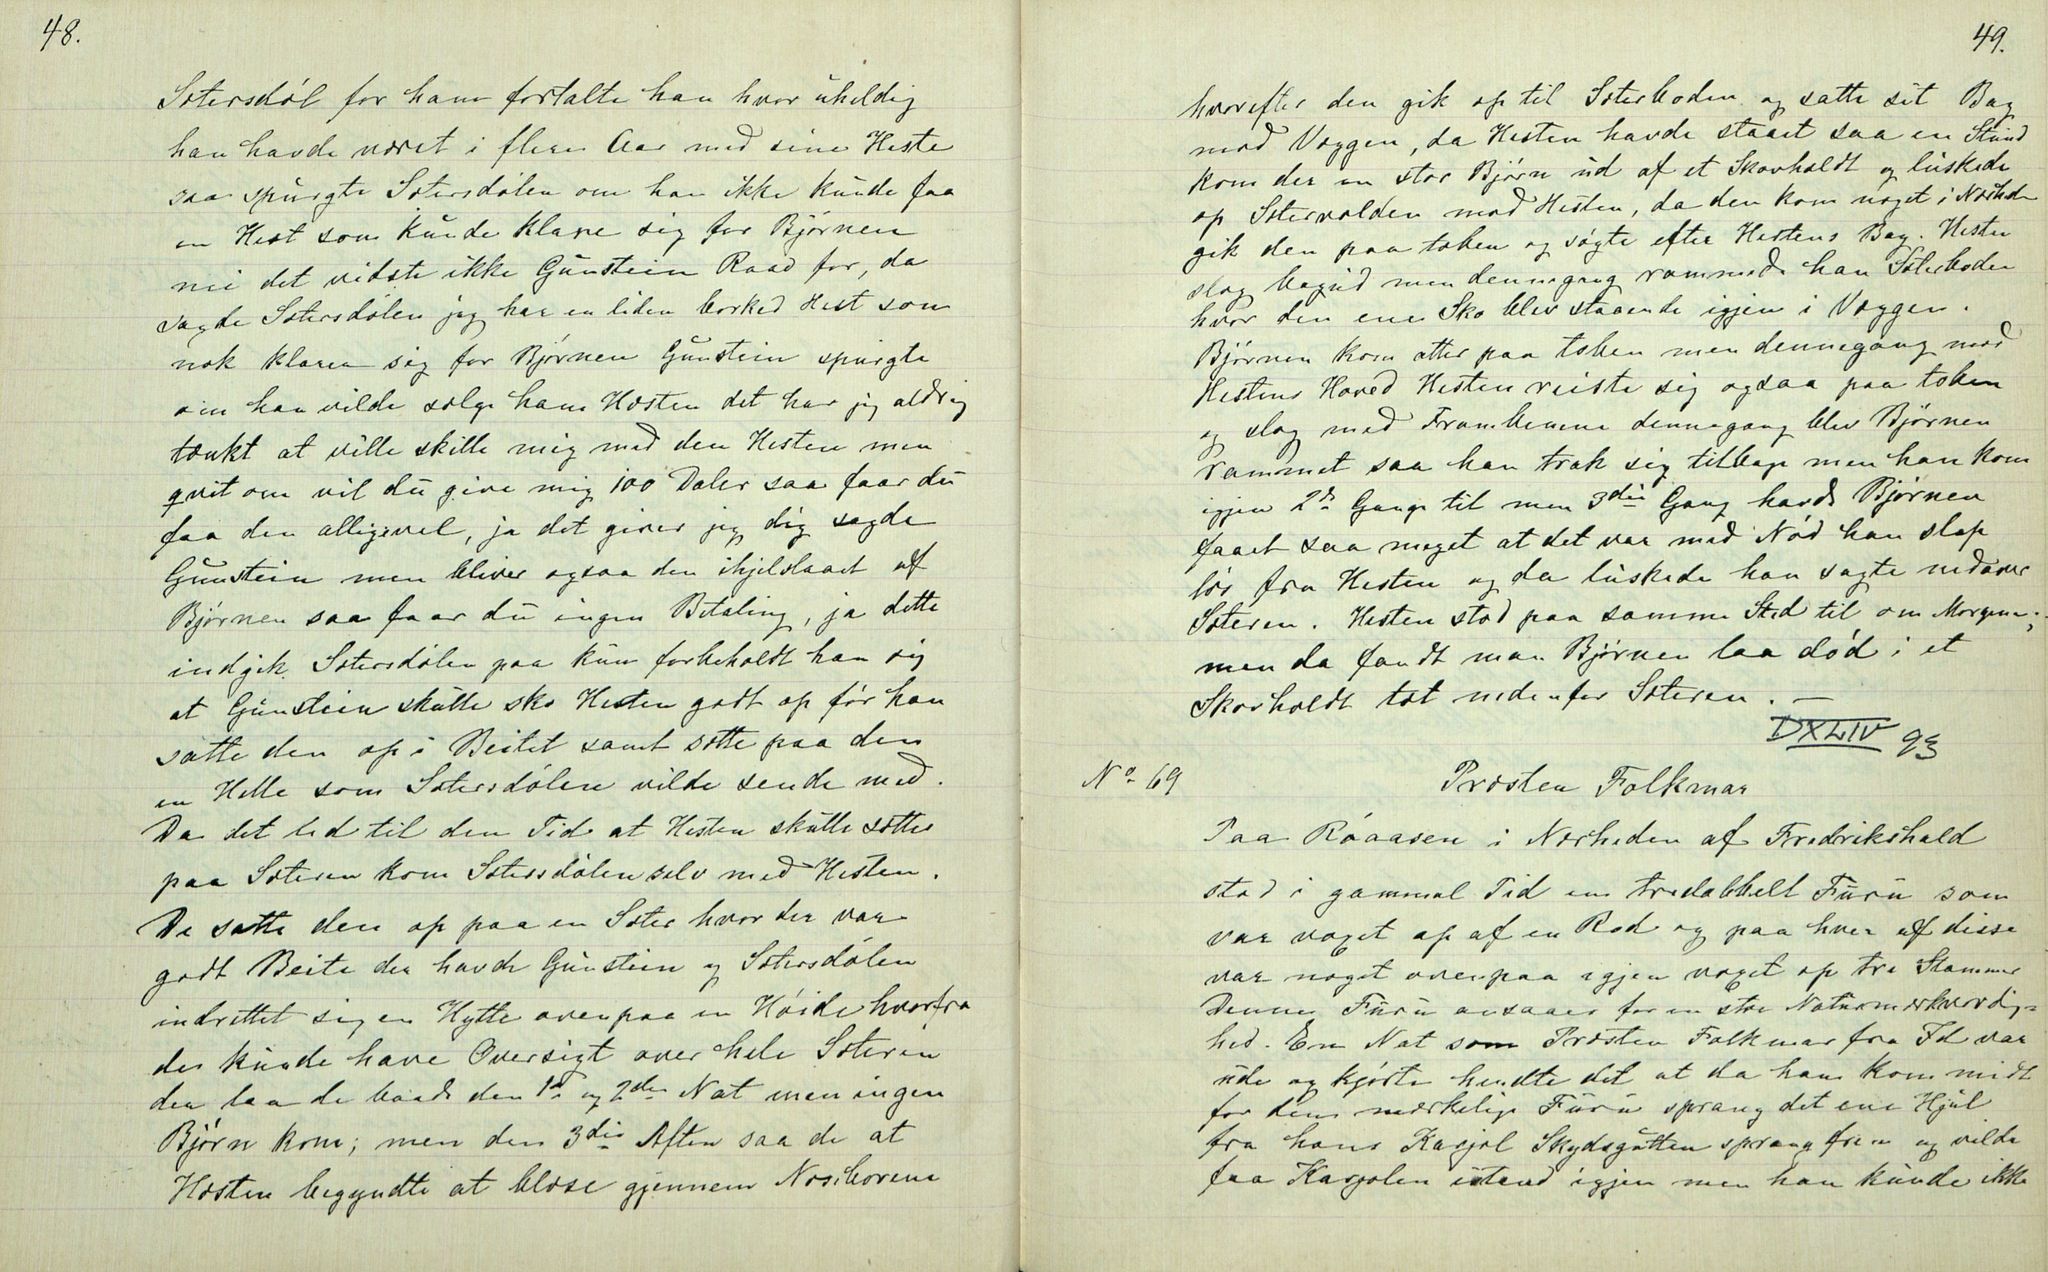 48.
Sætersdøl for ham fortalte han hvor uheldig
han havde været i flere Aar med sine Heste
saa spurgte Sætersdølen om han ikke kunde faa
en Hest som kunde klare sig for Bjørnen
nei det vidste ikke Gunstein Raad for, da
sagde Sætersdølen jeg har en liden borked Hest som
nok klarer sig for Bjørnen Gunstein spurgte
om han vilde sælge ham Hæsten det har jeg aldrig
tænkt at ville skille mig med den Hesten men
qvit om vil du give mig 100 Daler saa faar du
faa den alligevel, ja det giver jeg dig sagde
Gunstein men bliver ogsaa den ihjelslaaet af
Bjørnen saa faar du ingen Betaling, ja dette
indgik Sætersdølen paa kun forbeholdt han sig
at Gunstein skulle sko Hesten godt op før han
satte den op i Beitet samt sætte paa den
en Helle som Sætersdølen vilde sende med.
Da det led til den Tid at Hesten skulle sættes
paa Sæteren kom Sætersdølen selv med Hesten.
De satte den op paa en Sæter hvor der var
godt Beite der havde Gunstein og Sætersdølen
indrettet sig en Hytte ovenpaa en Høide hvorfra
der kunde have Oversigt over hele Sæteren
der laa de baade den 1ste og 2den Nat men ingen
Bjørn kom; men den 3die Aften saa de at
Hæsten begyndte at blæse gjennem Næseborene
49.
hvorefter den gik op til Sæterboden og satte sit Bag
mod Væggen, da Hesten havde staaet saa en Stund
kom der en stor Bjørn ud af et Skovholdt og luskede
op Sætervolden mod Hesten, da den kom noget i Nærheden
gik den paa toben og søgte efter Hestens Bag. Hesten
slog bagud men dennegang rammede han Sæterboden
hvor den ene Sko blev staaende igjen i Væggen.
Bjørnen kom atter paa toben men dennegang mod
Hestens Hoved Hesten reiste sig ogsaa paa toben
og slog med Frambenene dennegang blev Bjørnen
rammet saa han trak sig tilbage men han kom
igjen 2de Gange til men 3die Gang havde Bjørnen
faaet saa meget at det var med Nød han slap
løs fra Hesten og da luskede han sagte nedover
Sæteren. Hesten stod paa samme Sted til om Morgenen;
men da fandt man Bjørnen laa død i et
Skovholdt tæt nedenfor Sæteren. —
DXLIV 93
No 69 Præsten Folkmar
Paa Røaasen i Nærheden af Fredrikshald
stod i gammel Tid en tredobbelt Furu som
var voxet op af en Rod og paa hver af disse
var noget ovenpaa igjen voxet op tre Stammer
Denne Furu ansaaes for en stor Naturmærkværdig=
hed. En Nat som Præsten Folkmar fra Id var
ude og kjørte hendte det at da han kom midt
for den mærkelige Furu sprang det ene Hjul
fra hans Karjol Skydsgutten sprang frem og vilde
faa Karjolen istand igjen men han kunde ikke